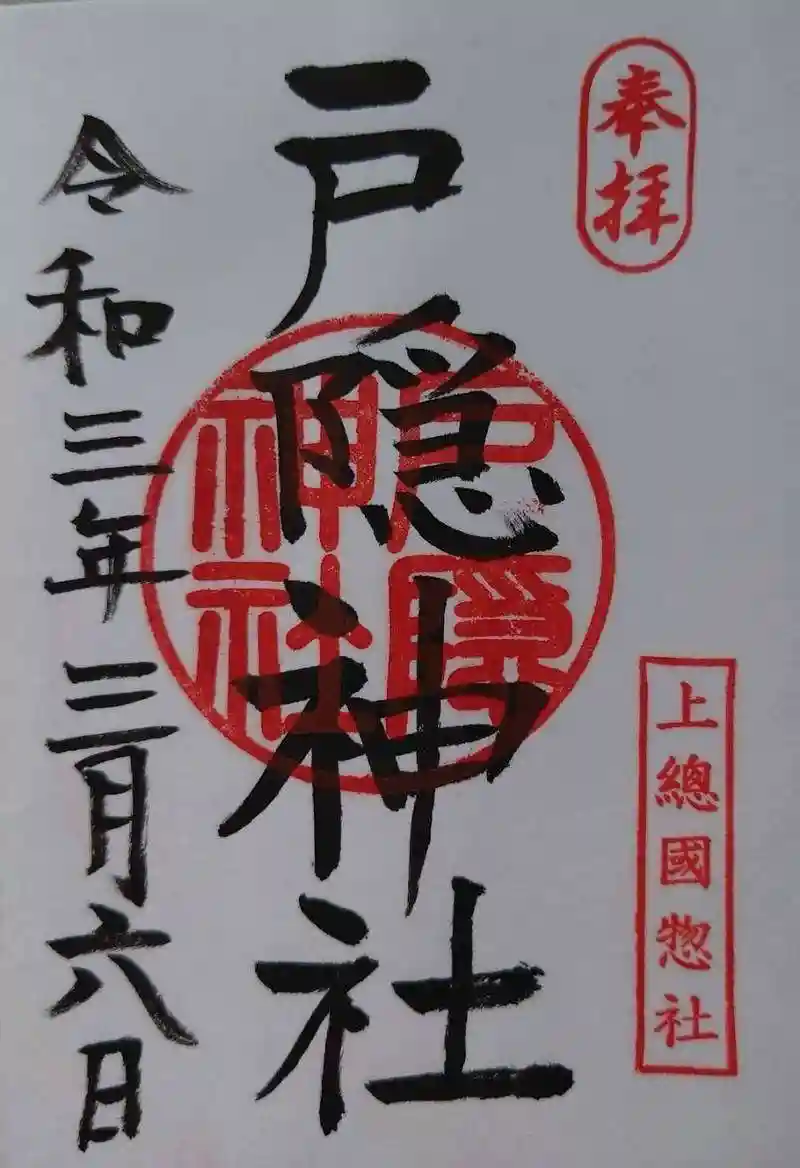 奉拝
上總國惣社
戸隠神社
戸隠神社
令和三年三月六日